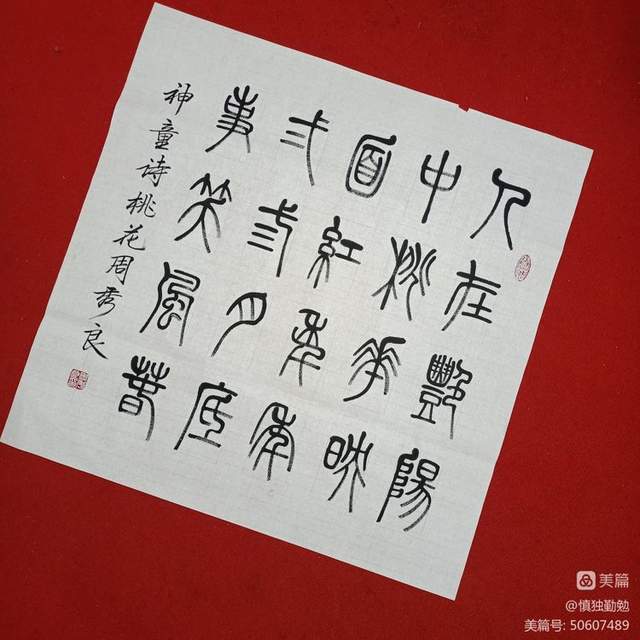 人在艷陽
中桃華映
面紅年年
弍弎月底
事笑風春
神童诗桃花周秀良
美篇
@慎独勤勉
美篇号: 50607489